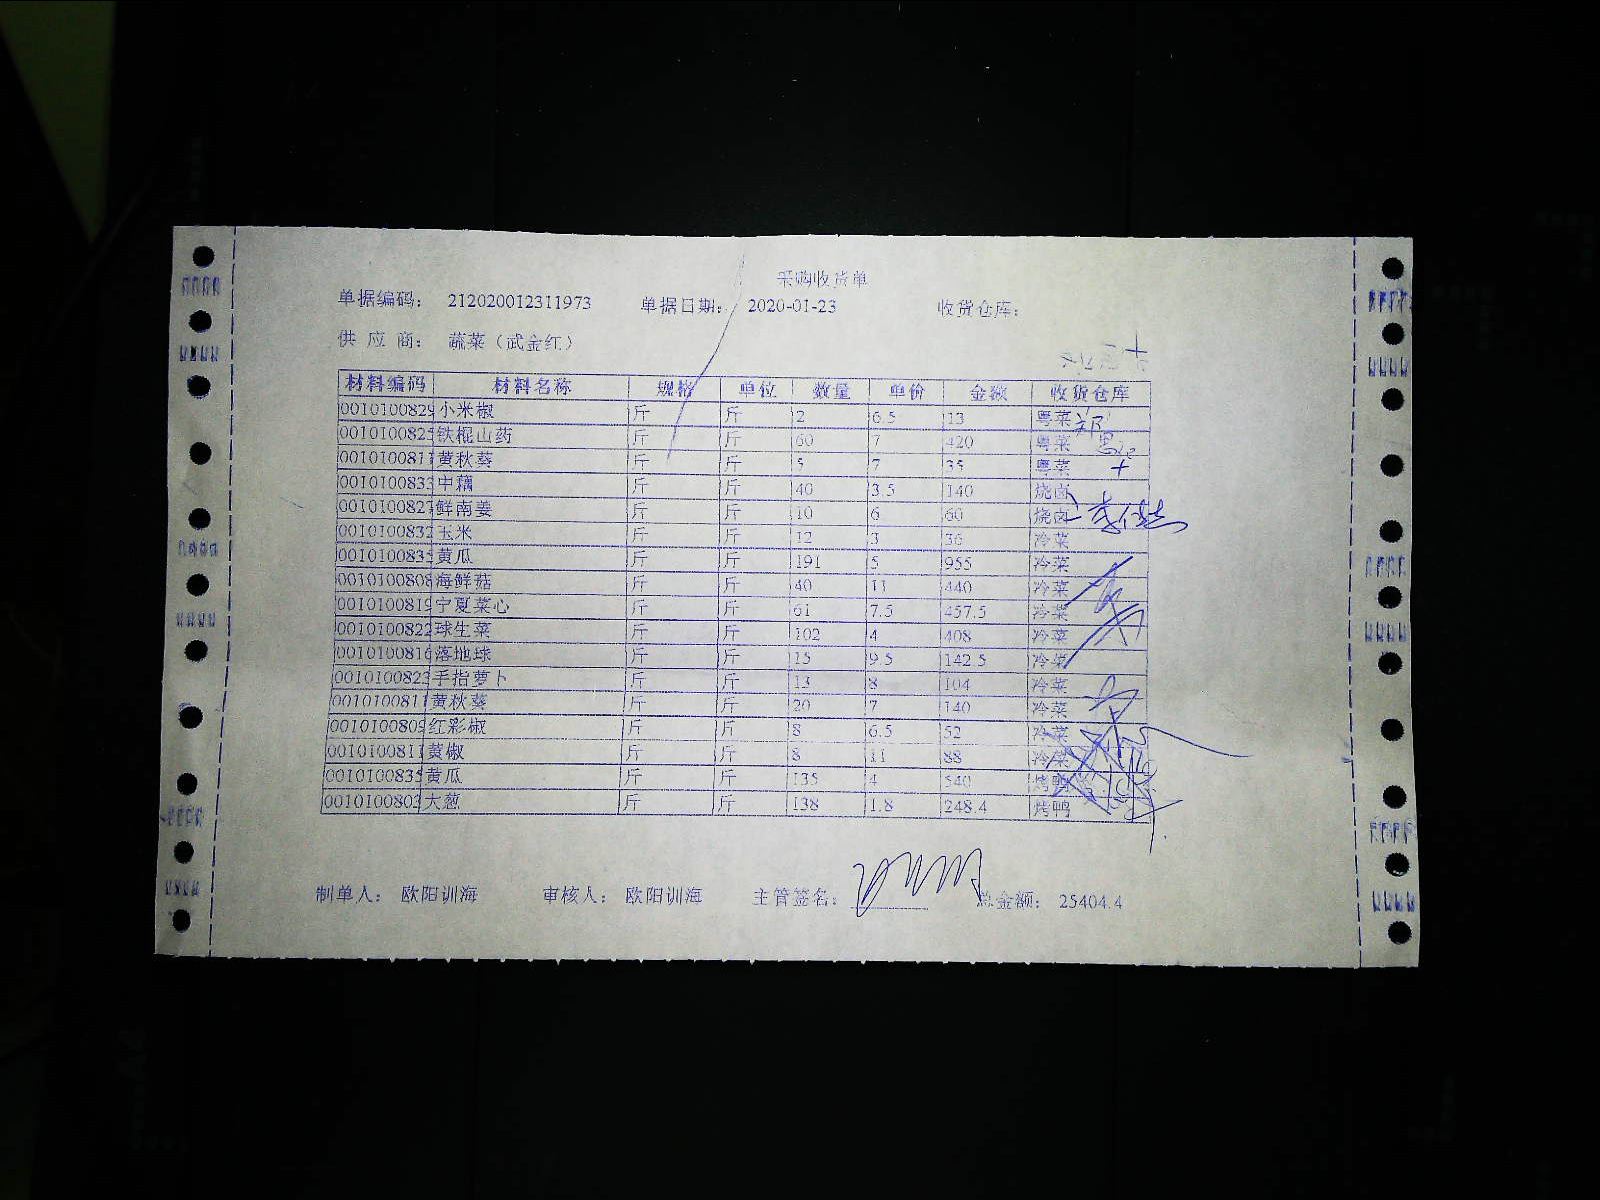 采购收货单
单据编码： 212020012311973 单据日期： 2020-01-23 收货仓库：
供 应 商： 蔬菜（武金红）
材料编码 材料名称 规格 单位 数量 单价 金额 收货仓库
0010100829 小米椒 斤 斤 2 6.5 13 粤菜
0010100825 铁棍山药 斤 斤 60 7 420 粤菜
0010100811 黄秋葵 斤 斤 5 7 35 粤菜
0010100833 中藕 斤 斤 40 3.5 140 烧卤
0010100827 鲜南姜 斤 斤 10 6 60 烧卤
0010100832 玉米 斤 斤 12 3 36 冷菜
0010100835 黄瓜 斤 斤 191 5 955 冷菜
0010100808 海鲜菇 斤 斤 40 11 440 冷菜
0010100819 宁夏菜心 斤 斤 61 7.5 457.5 冷菜
0010100822 球生菜 斤 斤 102 4 408 冷菜
0010100816 落地球 斤 斤 15 9.5 142.5 冷菜
0010100823 手指萝卜 斤 斤 13 8 104 冷菜
0010100811 黄秋葵 斤 斤 20 7 140 冷菜
0010100809 红彩椒 斤 斤 8 6.5 52 冷菜
0010100811 黄椒 斤 斤 8 11 88 冷菜
0010100835 黄瓜 斤 斤 135 4 540 烤鸭
0010100803 大葱 斤 斤 138 1.8 248.4 烤鸭
制单人： 欧阳训海 审核人： 欧阳训海 主管签名： 总金额： 25404.4